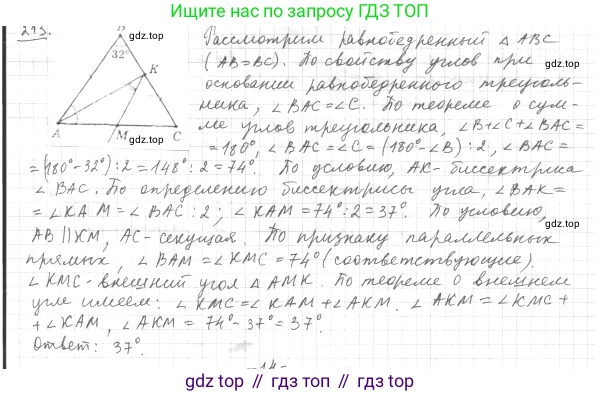 Ищите нас по запросу ГДЗ ТОП
293.
B
gdz.top
32°
K
A
M
C
gdz.top
Рассмотрим равнобедренный △ ABC
(AB=BC). По свойству углов при
основании равнобедренного треуголь-
ника, ∠BAC=∠C. По теореме о сум-
ме углов треугольника, ∠B+∠C+∠BAC=
=180°, ∠BAC=∠C=(180°-∠B):2, ∠BAC=
=(180°-32°):2=148°:2=74°. По условию, AK-биссектриса
∠BAC. По определению биссектрисы угла, ∠BAK=
=∠KAM=∠BAC:2; ∠KAM=74°:2=37°. По условию,
AB∥KM, AC-секущая. По признаку параллельных
прямых, ∠BAM=∠KMC=74° (соответствующие).
∠KMC-внешний угол △AMK. По теореме о внешнем
угле имеем: ∠KMC=∠KAM+∠AKM. ∠AKM=∠KMC+
+∠KAM, ∠AKM=74°-37°=37°.
Ответ: 37°.
-14-
gdz.top // гдз.top // гдз.топ